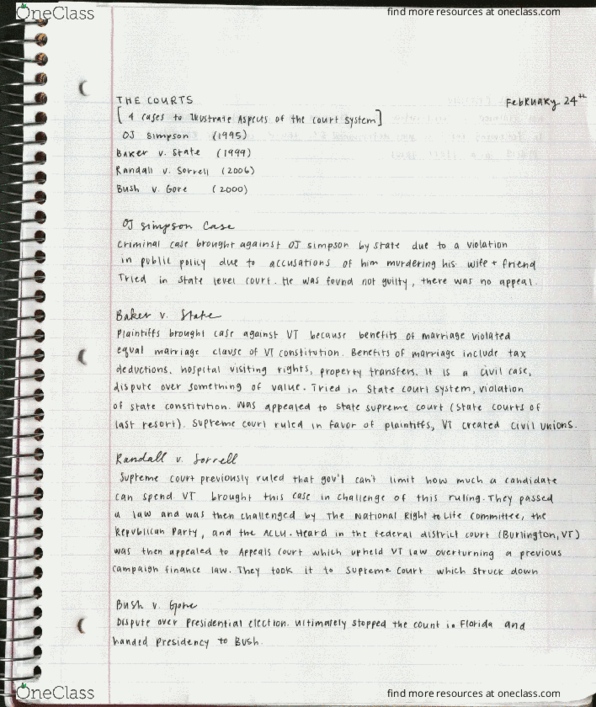 OneClass
find more resources at oneclass.com
February 24th
THE COURTS
[4 cases to Illustrate Aspects of the court system]
OJ Simpson (1995)
Baker v. State (1999)
Randall v. Sorrell (2006)
Bush v. Gore (2000)
OJ Simpson Case
Criminal case brought against OJ Simpson by state due to a violation
in public policy due to accusations of him murdering his wife + friend
Tried in State level court. He was found not guilty, there was no appeal.
Baker v. State
Plaintiffs brought case against VT because benefits of marriage violated
equal marriage clause of VT constitution. Benefits of marriage include tax
deductions, hospital visiting rights, property transfers. It is a civil case,
dispute over something of value. Tried in State court system, violation
of state constitution. Was appealed to state supreme court (State courts of
last resort). Supreme court ruled in favor of plaintiffs, VT created civil unions.
Randall v. Sorrell
Supreme court previously ruled that gov't can't limit how much a candidate
can spend VT brought this case in challenge of this ruling. They passed
a law and was then challenged by The National Right to Life Committee, the
Republican Party, and the ACLU. Heard in the federal district court (Burlington, VT)
was then appealed to Appeals court which upheld VT law overturning a previous
campaign finance law. They took it to Supreme Court which struck down
Bush v. Gore
Dispute over Presidential election. Ultimately stopped the count in Florida and
handed Presidency to Bush.
OneClass
find more resources at oneclass.com